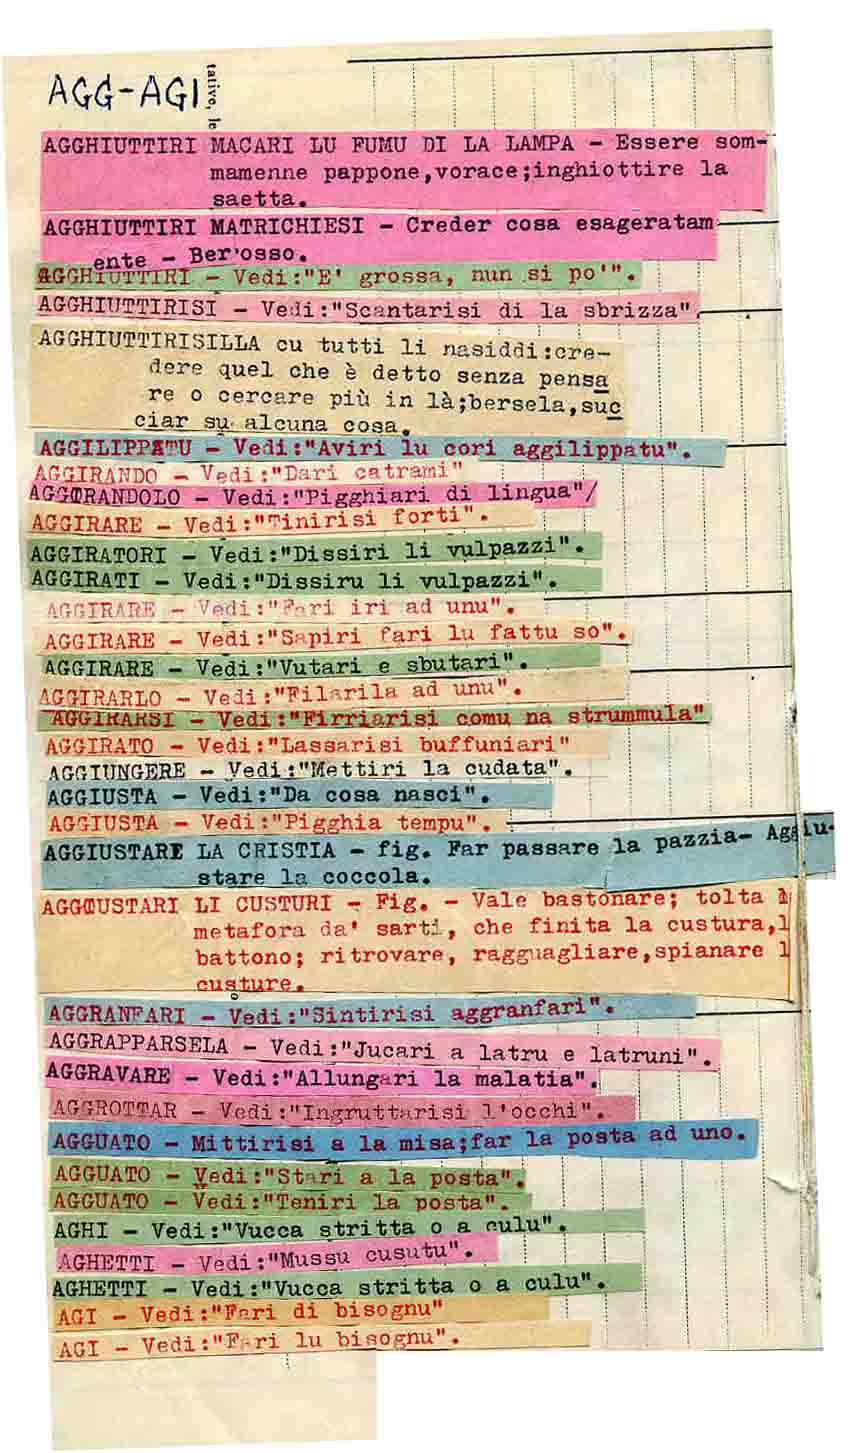 AGG-AGI
tative, le
AGGHIUTTIRI MACARI LU FUMU DI LA LAMPA - Essere som-
mamenne pappone,vorace;inghiottire la
saetta.
AGGHIUTTIRI MATRICHIESI - Creder cosa esageratam
ente - Ber'osso.
AGGHIUTTIRI - Vedi:"E' grossa, nun si po'".
AGGHIUTTIRISI - Vedi:"Scantarisi di la sbrizza".
AGGHIUTTIRISILLA cu tutti li nasiddi:cre-
dere quel che è detto senza pensa
re o cercare più in là;bersela,suc
ciar su alcuna cosa.
AGGILIPPATU - Vedi:"Aviri lu cori aggilippatu".
AGGIRANDO - Vedi:"Dari catrami"
AGGIRANDOLO - Vedi:"Pigghiari di lingua"/
AGGIRARE - Vedi:"Tinirisi forti".
AGGIRATORI - Vedi:"Dissiri li vulpazzi".
AGGIRATI - Vedi:"Dissiru li vulpazzi".
AGGIRARE - Vedi:"Fari iri ad unu".
AGGIRARE - Vedi:"Sapiri fari lu fattu so".
AGGIRARE - Vedi:"Vutari e sbutari".
AGGIRARLO - Vedi:"Filarila ad unu".
AGGIRARSI - Vedi:"Firriarisi comu na strummula"
AGGIRATO - Vedi:"Lassarisi buffuniari"
AGGIUNGERE - Vedi:"Mettiri la cudata".
AGGIUSTA - Vedi:"Da cosa nasci".
AGGIUSTA - Vedi:"Pigghia tempu".
AGGIUSTARE LA CRISTIA - fig. Far passare la pazzia- Aggiu-
stare la coccola.
AGGIUSTARI LI CUSTURI - Fig. - Vale bastonare; tolta
metafora da' sarti, che finita la custura,l
battono; ritrovare, ragguagliare,spianare l
custure.
AGGRANFARI - Vedi:"Sintirisi aggranfari".
AGGRAPPARSELA - Vedi:"Jucari a latru e latruni".
AGGRAVARE - Vedi:"Allungari la malatia".
AGGROTTAR - Vedi:"Ingruttarisi l'occhi".
AGGUATO - Mittirisi a la misa;far la posta ad uno.
AGGUATO - Vedi:"Stari a la posta".
AGGUATO - Vedi:"Teniri la posta".
AGHI - Vedi:"Vucca stritta o a culu".
AGHETTI - Vedi:"Mussu cusutu".
AGHETTI - Vedi:"Vucca stritta o a culu".
AGI - Vedi:"Fari di bisognu"
AGI - Vedi:"Fari lu bisognu".